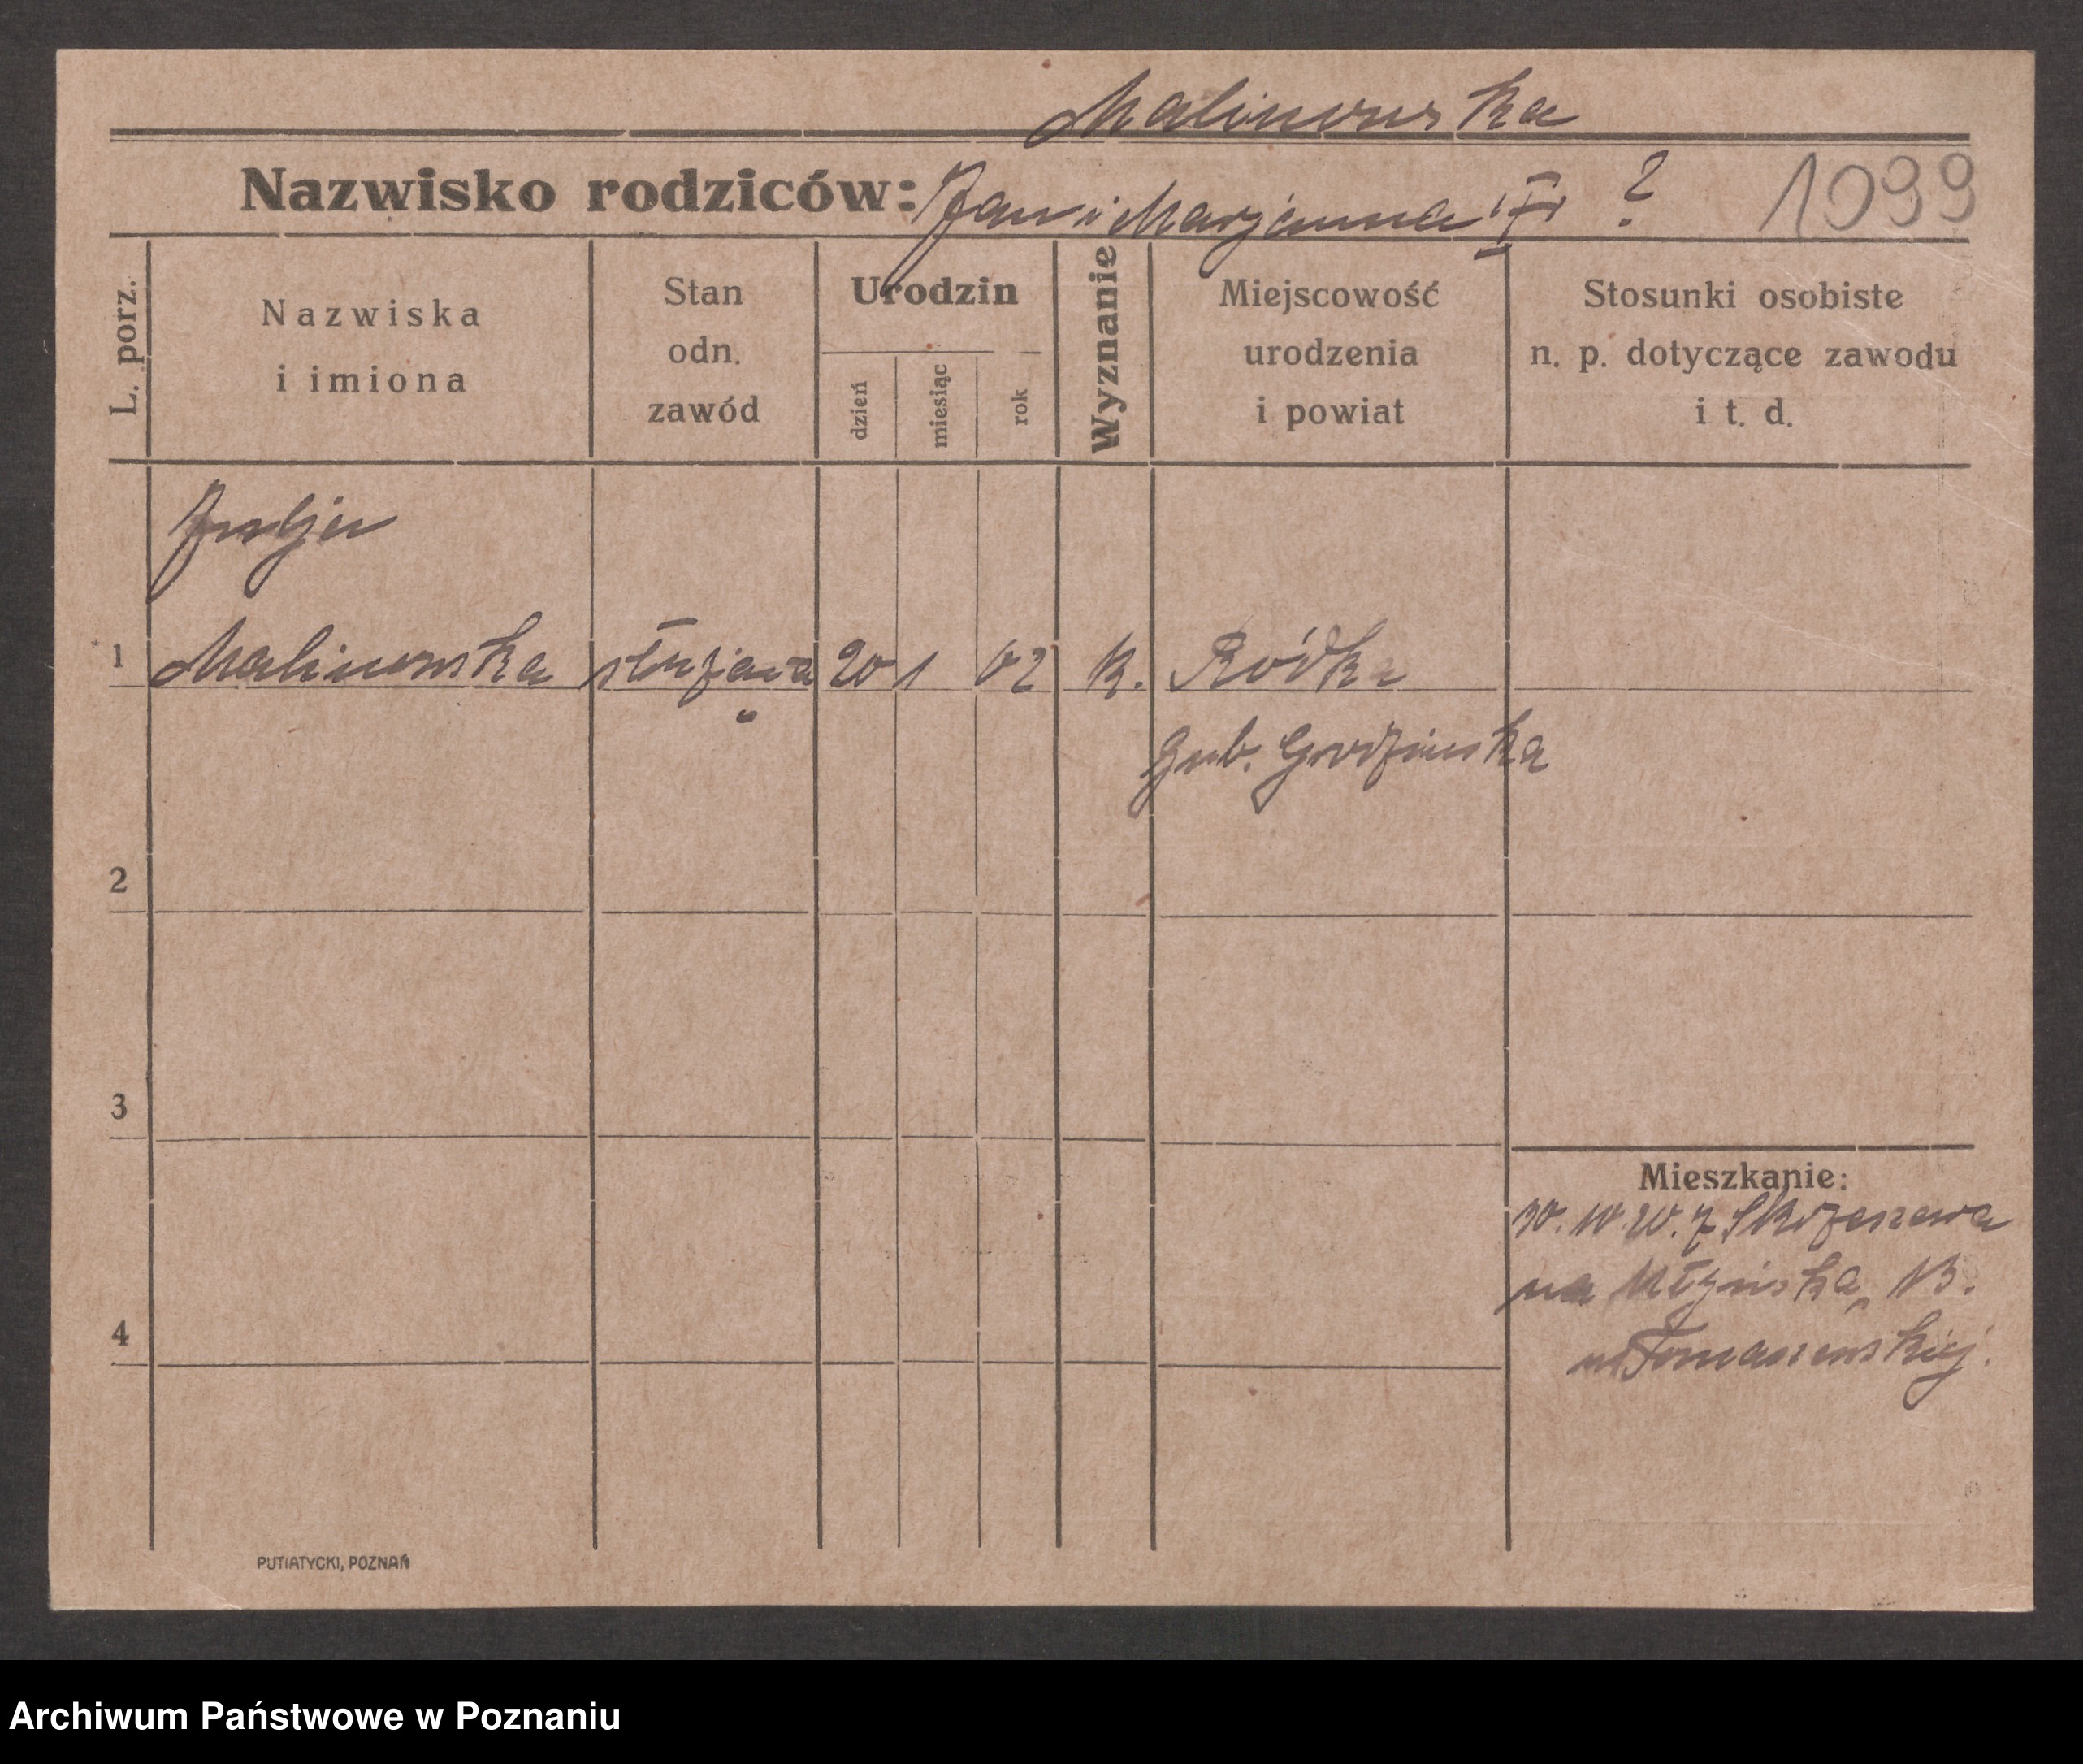 Malinowska
Nazwisko rodziców: Jan i Marjanna ?
1099
L. porz.
Nazwiska
i imiona
Stan
odn.
zawód
Urodzin
dzień
miesiąc
rok
Wyznanie
Miejscowość
urodzenia
i powiat
Stosunki osobiste
n. p. dotyczące zawodu
i t. d.
Julja
1 Malinowska służąca 20 1 02 k. Ródka
Gub. Grodzinska
2
3
4
Mieszkanie:
z Skrzeszewa
na Młyńską 13.
u Tomaszewskiej.
PUTIATYCKI, POZNAŃ
Archiwum Państwowe w Poznaniu